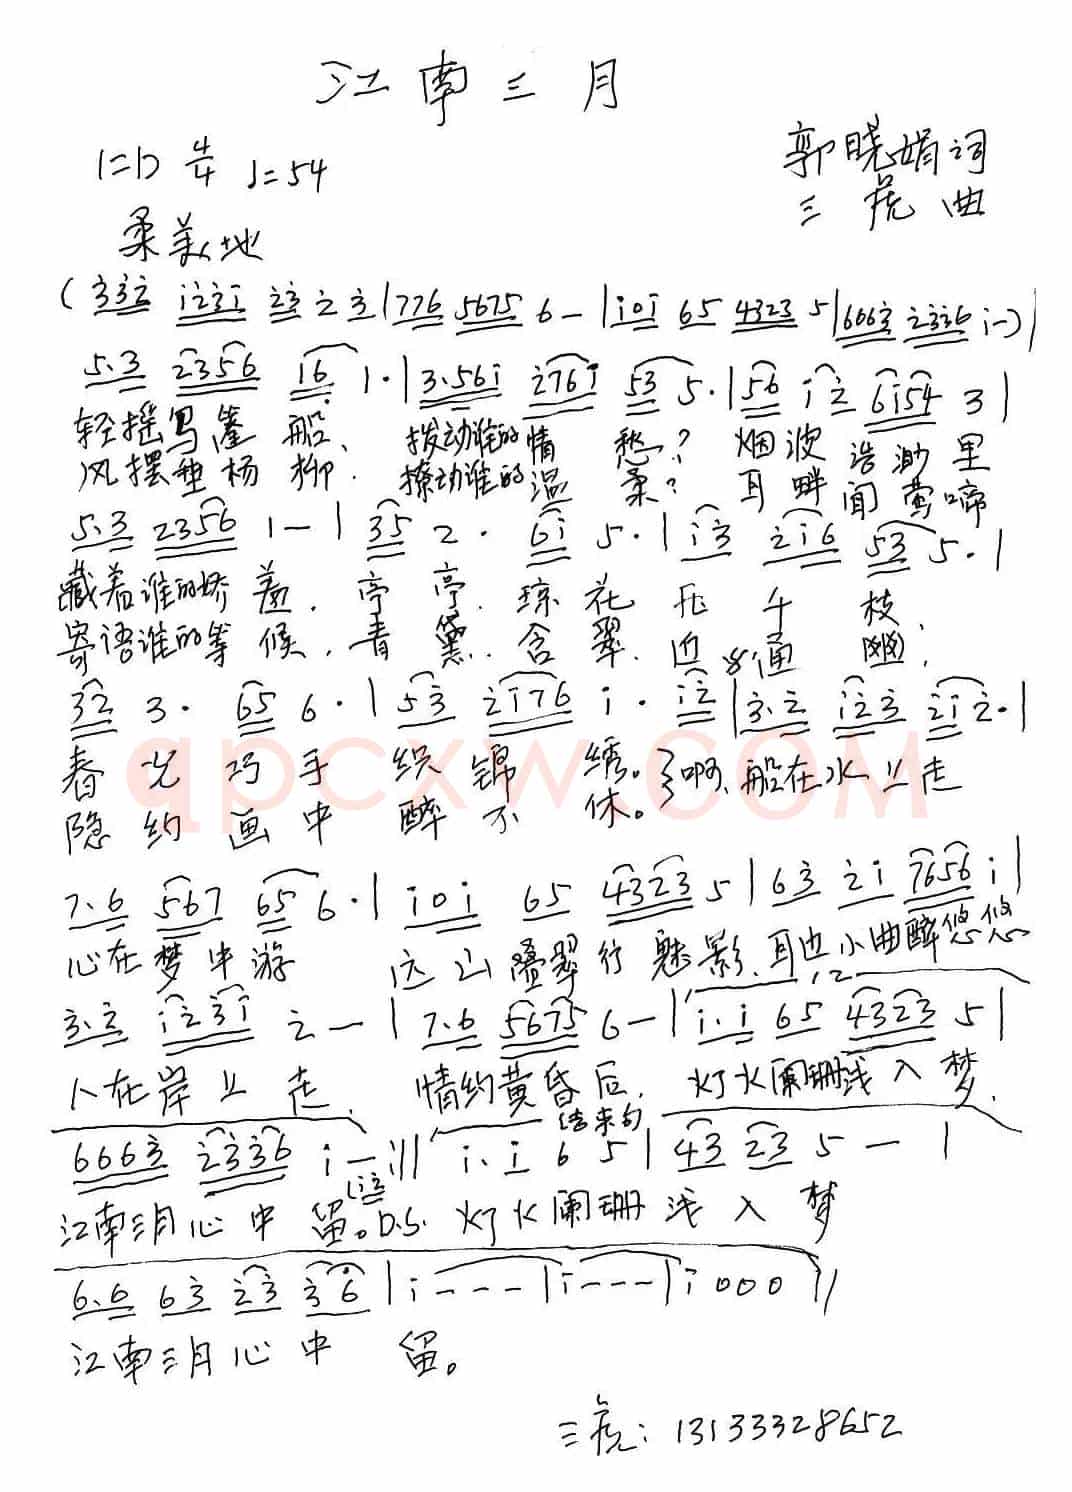 江南三月
1=D 4/4 ♩=54
郭晓娟词
三 虎 曲
柔美地
(3̇3̇2̇ 1̇2̇3̇1̇ 2̇3̇ 2̇ 3̇|776 5675 6 —|1̇01̇ 65 4323 5|6663̇ 2̇3̇3̇6 1̇ —)|
5.3 2356 16 1.|3.561̇ 2̇761̇ 53 5.|56 1̇2̇ 61̇54 3|
轻摇乌篷 船、 拨动谁的情 愁? 烟波 浩渺里
风摆垂杨 柳. 撩动谁的温 柔? 耳畔 闻莺啼
5.3 2356 1 —|35 2. 61̇ 5.|1̇3̇ 2̇1̇6 53 5.|
藏着谁的娇 羞. 亭 亭. 琼 花 开 千 枝.
寄语谁的等 候. 青 黛. 含 翠. 迎 通 幽,
3̇2̇ 3̇. 65 6.|53̇ 2̇1̇76 1̇. 1̇2̇|3̇.2̇ 1̇2̇3̇ 2̇1̇ 2̇.|
春 光 巧 手 织 锦 绣。}啊、船在水上走
隐 约 画 中 醉 不 休。
7.6 567 65 6.|1̇01̇ 65 4323 5|63̇ 2̇1̇ 7656 1̇|
心在梦中游 远山叠翠行魅影.耳边小曲醉悠悠
3̇.2̇ 1̇2̇3̇1̇ 2̇ —|7.6 5675 6 —|1̇.1̇ 65 4323 5|
1,2
人在岸上 走. 情约黄昏后. 灯火阑珊浅入梦.
结束句
6663̇ 2̇3̇3̇6 1̇ — :|| 1̇.1̇ 6 5|43 23 5 —|
(1̇2̇
江南三月心中 留。D.S. 灯火阑珊 浅 入 梦
6.6 63̇ 2̇3̇ 3̇6|1̇ - - -|1̇ - - -|1̇ 0 0 0||
江南三月心 中 留。
三虎: 13133328652
qpcxw.com